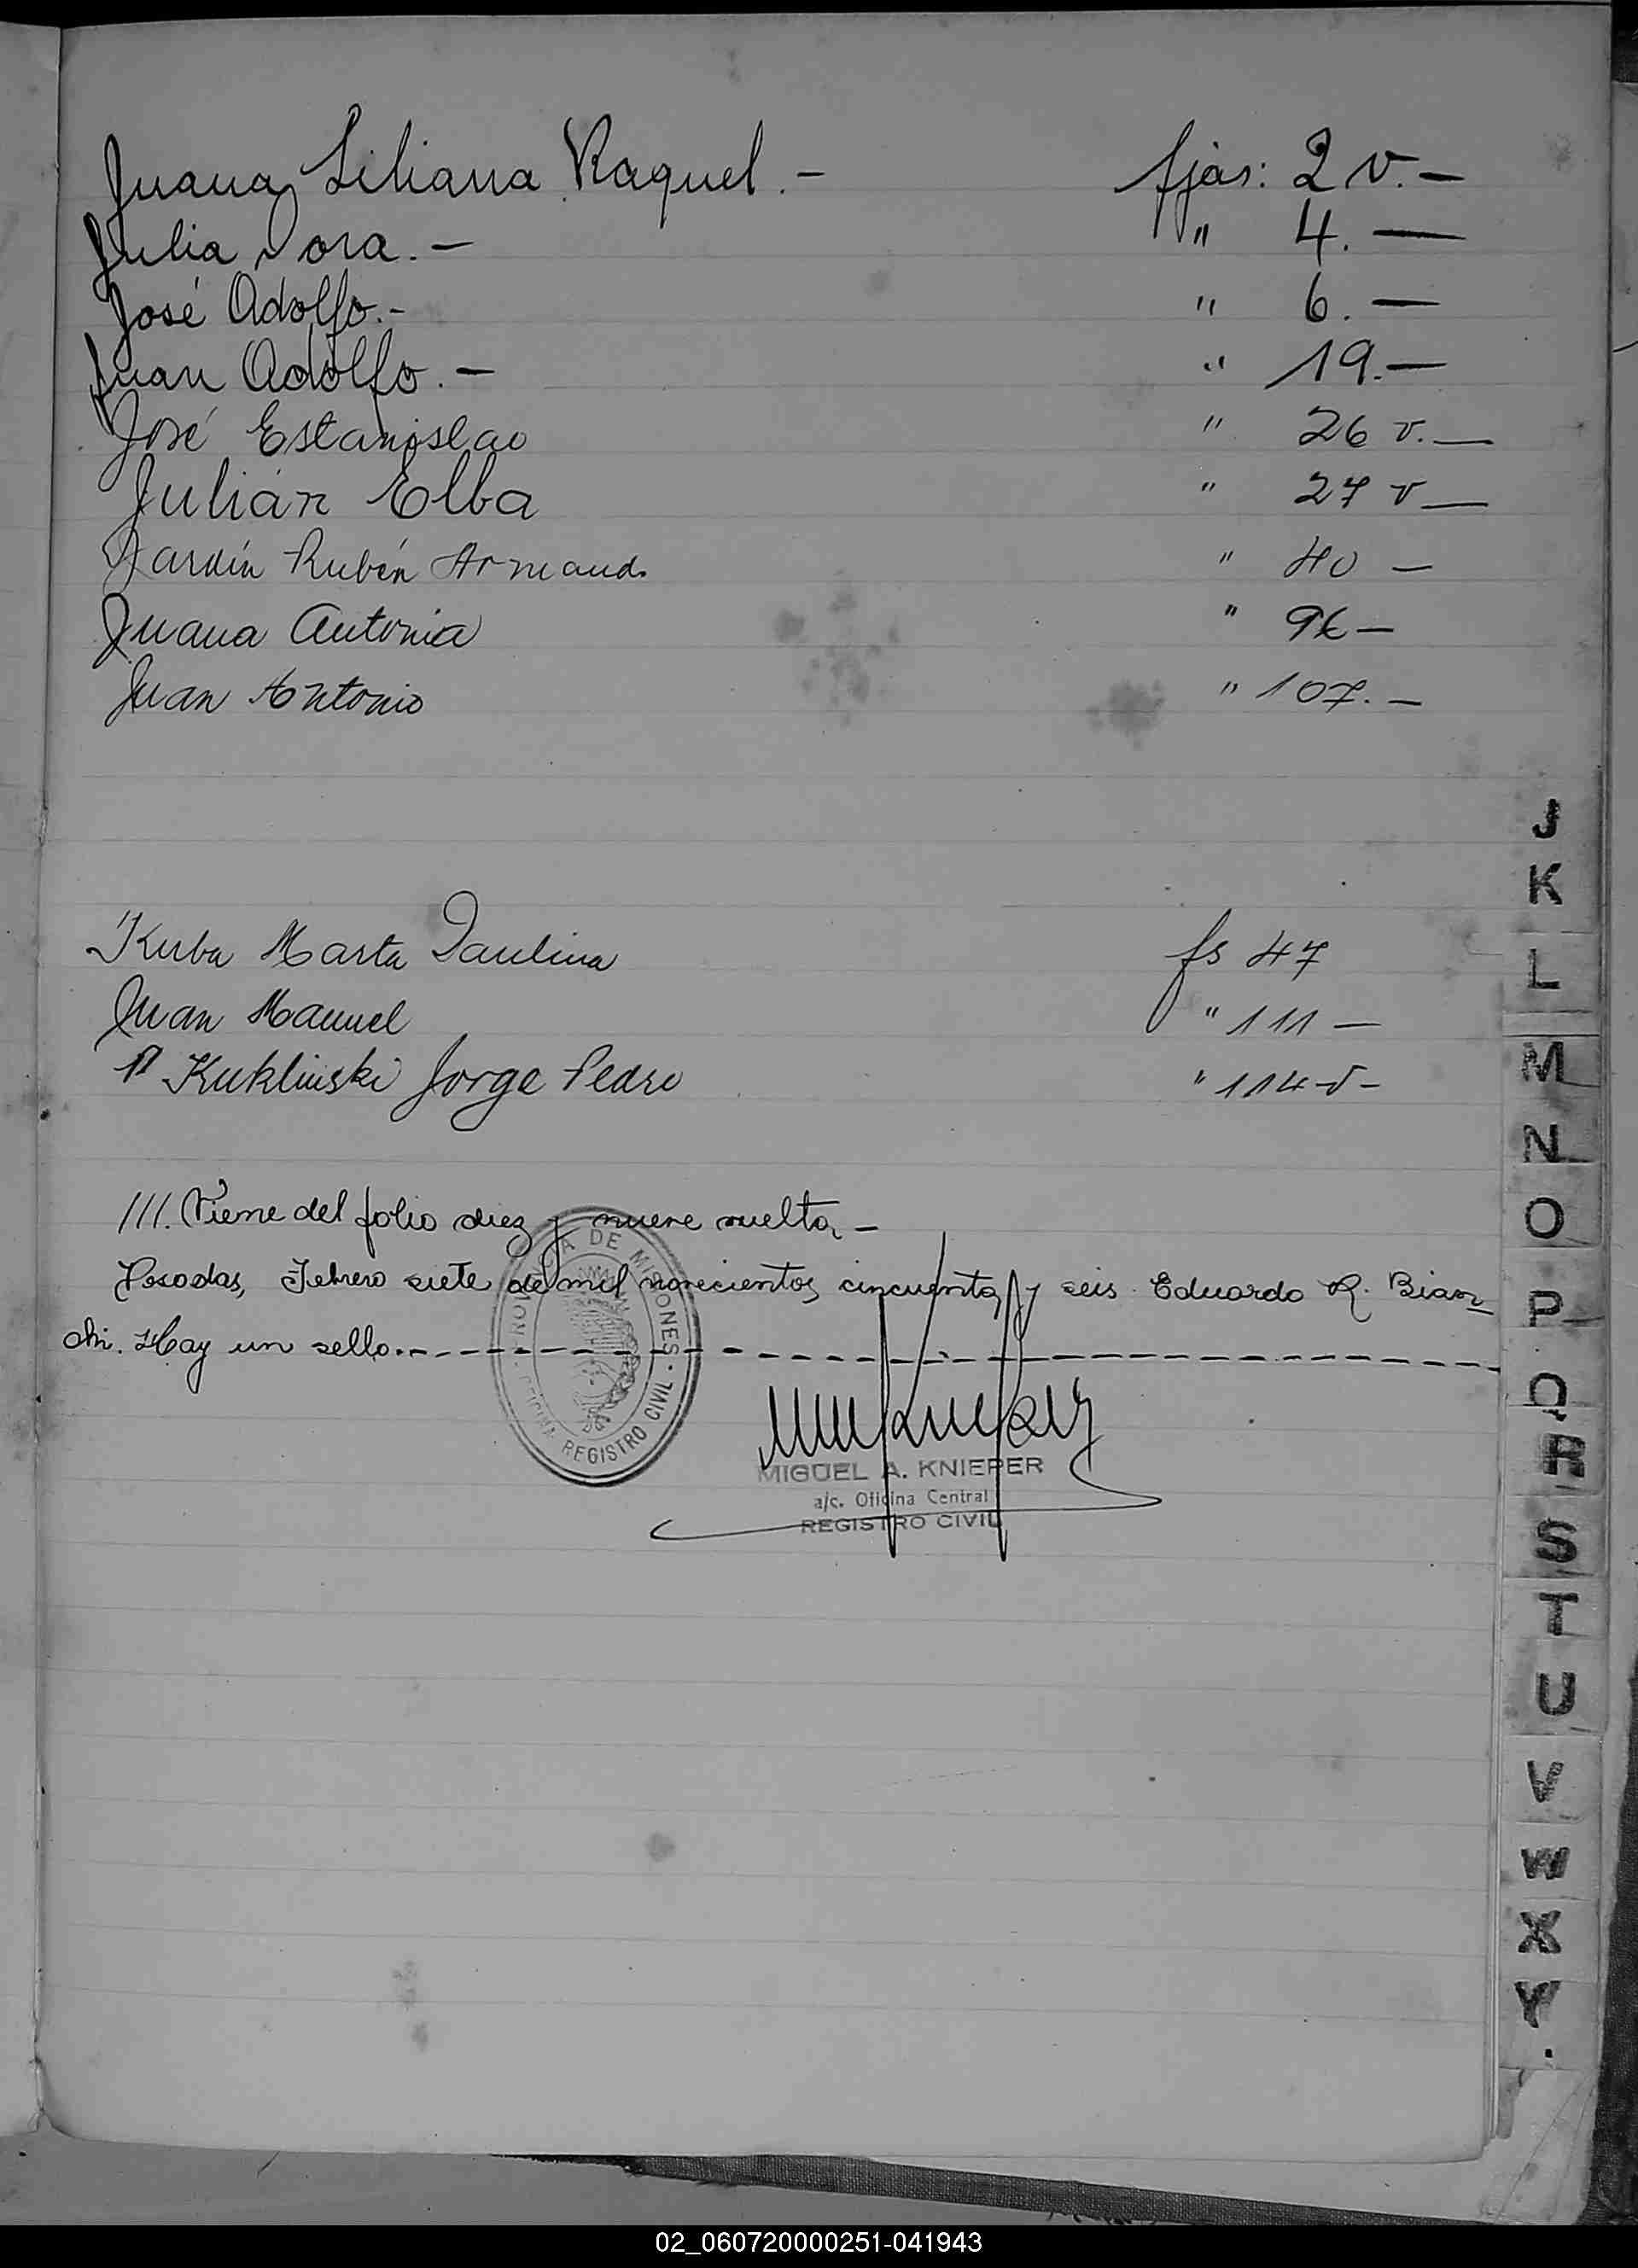 Juana Liliana Raquel.- fjas: 2 v.-
Julia Dora.- " 4.-
José Adolfo.- " 6.-
Juan Adolfo.- " 19.-
José Estanislao " 26 v.-
Julián Elba " 27 v-
Jardín Rubén Armando " 40 -
Juana Antonia " 96-
Juan Antonio " 107.-
J
K
Kuba Marta Paulina fs 47
L
Juan Manuel " 111 -
Kuklinski Jorge Pedro " 114 v-
M
N
III. Viene del folio diez y nueve vuelta,-
O
Posadas, Febrero siete de mil novecientos cincuenta y seis. Eduardo R. Bian
chi. Hay un sello.-
P
PROVINCIA DE MISIONES · OFICINA REGISTRO CIVIL ·
Q
MIGUEL A. KNIEPER
a/c. Oficina Central
REGISTRO CIVIL
R
S
T
U
V
W
X
Y.
02_060720000251-041943